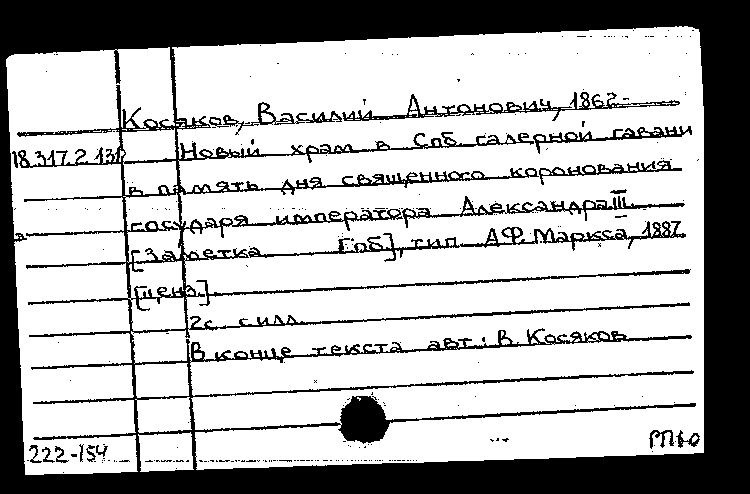 Косяков, Василий Антонович, 1862-
18.317.2.131 Новый храм в Спб. галерной гавани
в память дня священного коронования
государя императора Александра III.
[Заметка Спб], тип. А.Ф. Маркса, 1887.
[ценз.].
2с. с илл.
В конце текста авт.: В. Косяков
222-154